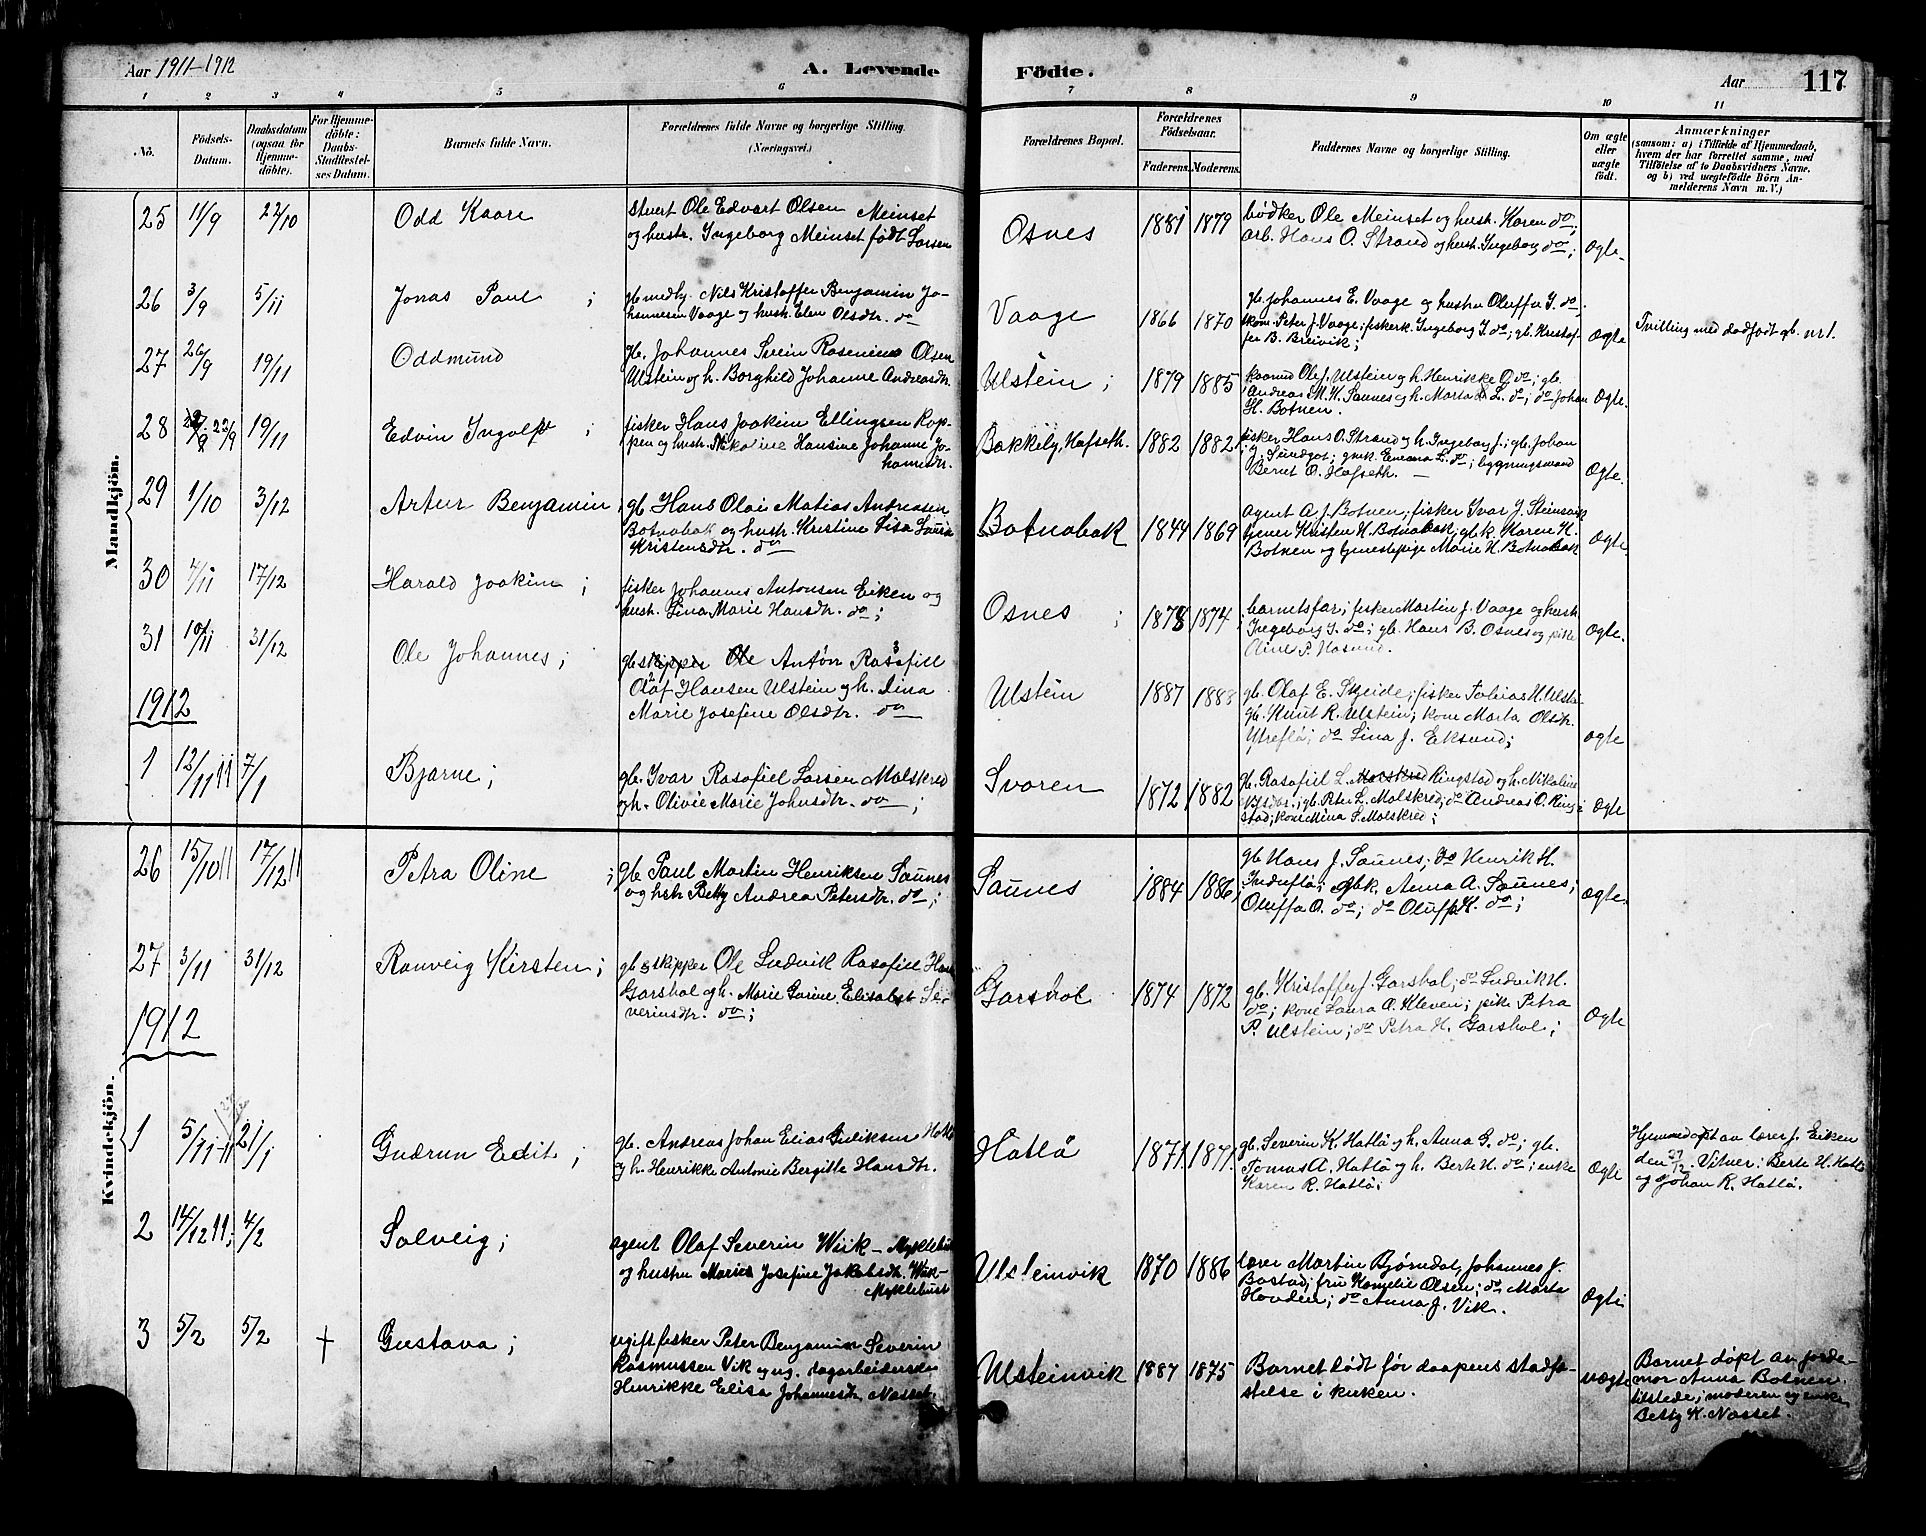 Aar 1911-1912
A. Levende Födte.
Aar 117
1 2 3 4 5 6 7 8 9 10 11
No.
Födsels-
Datum.
Daabsdatum
(ogsaa for
Hjemme-
döbte).
For Hjemme-
döbte:
Daabs-
Stadfæstel-
ses Datum.
Barnets fulde Navn.
Forældrenes fulde Navne og borgerlige Stilling.
(Næringsvei.)
Forældrenes Bopæl.
Forældrenes
Födselsaar.
Faderens. Moderens.
Faddernes Navne og borgerlige Stilling.
Om ægte
eller
uægte
födt.
Anmærkninger
(saasom: a) i Tilfælde af Hjemmedaab,
hvem der har forrettet samme, med
Tilföielse af to Daabsvidners Navne,
og b) ved uægtefödte Börn An-
melderens Navn m. V.)
Mandkjön.
25 11/9 22/10 Odd Kaare
stuert Ole Edvart Olsen Meinset
og hustr. Ingeborg Meinset født Larsen
Osnes 1881 1879
bødker Ole Meinset og hust. Karen do;
arb. Hans O. Strand og hust. Ingeborg do;
Ægte
26 3/9 5/11 Jonas Paul ;
gb medhj. Nils Kristoffer Benjamin Jo-
hannesen Vaage og hustr. Elen Olsdtr. do
Vaage 1866 1870
gb. Johannes E. Vaage og hustru Oluffa J. do
kone Peter J. Vaage; fiskerk. Ingeborg J. do; gb. Kristof-
fer B. Breivik;
Ægte
Tvilling med dødfødt gb. nr 1.
27 26/9 19/11 Oddmund
gb. Johannes Svein Rasenius Olsen
Ulstein og h. Borghild Johanne Andreasdtr.
Ulstein ; 1879 1885
kaarmd Ole J. Ulstein og h. Henrikke O do; gb.
Andreas M. H. Saunes og h. Marta L. do; do Johan
H. Botnen.
Ægte.
28 22/9 19/11 Edvin Ingolf ;
fisker Hans Joakim Ellingsen Rop-
pen og hustr. Nikoline Hansine Johanne Jo-
hansdtr.
Bakkely, Hafseth. 1882 1882
fisker Hans O. Strand og h. Ingeborg J.; gb. Johan
J. Sundgot; gmk. Eneana L. do; bygningsmand
Bernt O. Hafseth.
Ægte.
29 1/10 3/12 Artur Benjamin ;
gb Hans Olai Matias Andreasen
Botnabak og hustr. Kristine Lisa Laura
Kristensdtr. do
Botnabak 1844 1869
agent A. J. Botnen; fisker Ivar J. Steinsvik
tjener Kristen H. Botnabak; gbk. Karen H.
Botnen og tjenestepige Marie H. Botnabak
Ægte
30 4/11 17/12 Harald Joakim ;
fisker Johannes Antonsen Eiken og
hust. Lina Marie Hansdtr. do;
Osnes ; 1878 1874
barnetsfar; fisker Martin J. Vaage og hust.
Ingeborg J. do; gb. Hans B. Osnes og pike
Aline P. Hasund.
Ægte.
31 10/11 31/12 Ole Johannes ;
gb skipper Ole Anton Rasofiel
Olaf Hansen Ulstein og h. Lina
Marie Josefine Olsdtr. do
Ulstein 1887 1888
gb. Olaf E. Skeide; fisker Tobias H. Ulstein
gb. Knut R. Ulstein; kone Marta Olsdtr.
Ytreflø; do Lina J. Eiksund;
Ægte
1912
1 12/11 11 7/1 Bjarne ;
gb. Ivar Rasofiel Larsen Malskred
og h. Olivie Marie Johnsdtr. do ;
Svoren 1872 1882
gb. Rasofiel L. Ringstad og h. Nikoline
gb. Peter L. Malskred; do Andreas O. Ring-
stad; kone Mina S. Malskred;
Ægte
Kvindekjön.
26 15/10 11 17/12 11 Petra Oline ;
gb. Paul Martin Henriksen Saunes
og hstr Betty Andrea Petersdtr. do;
Saunes 1884 1886
gb Hans J. Saunes; do Henrik H.
Indreflø; gbk. Anna A. Saunes;
Oluffa O. do; do Oluffa K. do;
Ægte.
27 3/11 31/12 Ranveig Kirsten ;
gb skipper Ole Ludvik Rasofiel Han
Garshol og h. Marie Gurine Elisabet Se-
verinsdtr. do;
Garshol 1874 1872
gb. Kristoffer J. Garshol; do Ludvik H.
do; kone Laura A. Kleven; pike Petra
P. Ulstein; do Petra H. Garshol;
Ægte
1912
1 5/11-11 21/1 Gudrun Edit ;
gb. Andreas Johan Elias Guliksen Hatlø
og h. Henrikke Antonie Bergitte Hansdtr.
Hatlø 1871 1871
gb. Severin K. Hatlø og h. Anna G. do; gb.
Tomas A. Hatlø og h. Berte H. do; enke
Karen R. Hatlø;
Ægte
Hjemmedøpt av lærer J. Eiken
den 27/12. Vitner: Berte H. Hatlø
og Johan R. Hatlø.
2 14/12 11; 4/2 Solveig ;
agent Olaf Severin Wiik-Myklebust
og hustru Marie Josefine Jakobsdtr. Wiik-
Myklebust
Ulsteinvik 1870 1886
lærer Martin Bjørndal, Johannes J.
Bastad; fru Kornelie Olsen; do Marta
Hovden; do Anna J. Vik.
Ægte
3 5/2 5/2 † Gustava ;
ugift fisker Peter Benjamin Severin
Rasmussen Vik og ug. dagarbeiderske
Henrikke Elisa Johannesdtr. Næsset.
Ulsteinvik 1887 1875
Barnet dødt før daapens stadfæ-
stelse i kirken.
uægte
Barnet døpt av jorde-
mor Anna Botnen.
tilstede; moderen og enke
Betty K. Næsset.